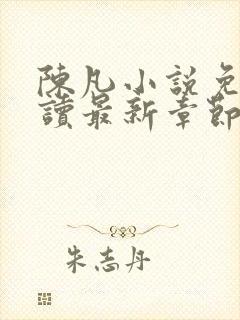 陳凡小說免
讀最新章節
朱志丹